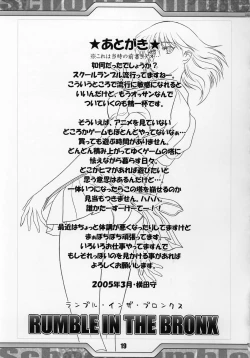 ★あとがき★
※これは当時の前書きデス
如何だったでしょうか？
スクールランブル流行ってますねー。
こういうところで流行に敏感になれると
いいんだけど、もうオッサンなんで
ついていくのも精一杯です。
そういえば、アニメを見ていない
どころかゲームもほとんどやってないなぁ…
買っても遊ぶ時間がありません。
どんどん積み上がってゆくゲームの塔に
怯えながら暮らす日々、
どこかヒマがあれば遊びたいと
思う意思はあるんだけど…
一体いつになったらこの塔を崩せるのか
見当もつきません、ハハハ、
誰かたすーけーてー！(
最近はちょっと体調が悪くなったりしてますけど
まぁぼちぼち頑張ってます。
いろいろお仕事やってますんで
もしそれっぽいのを見かける事があれば
よろしくお願いします。
2005年3月・横田守
ランブル・イン・ザ・ブロンクス
RUMBLE IN THE BRONX
19